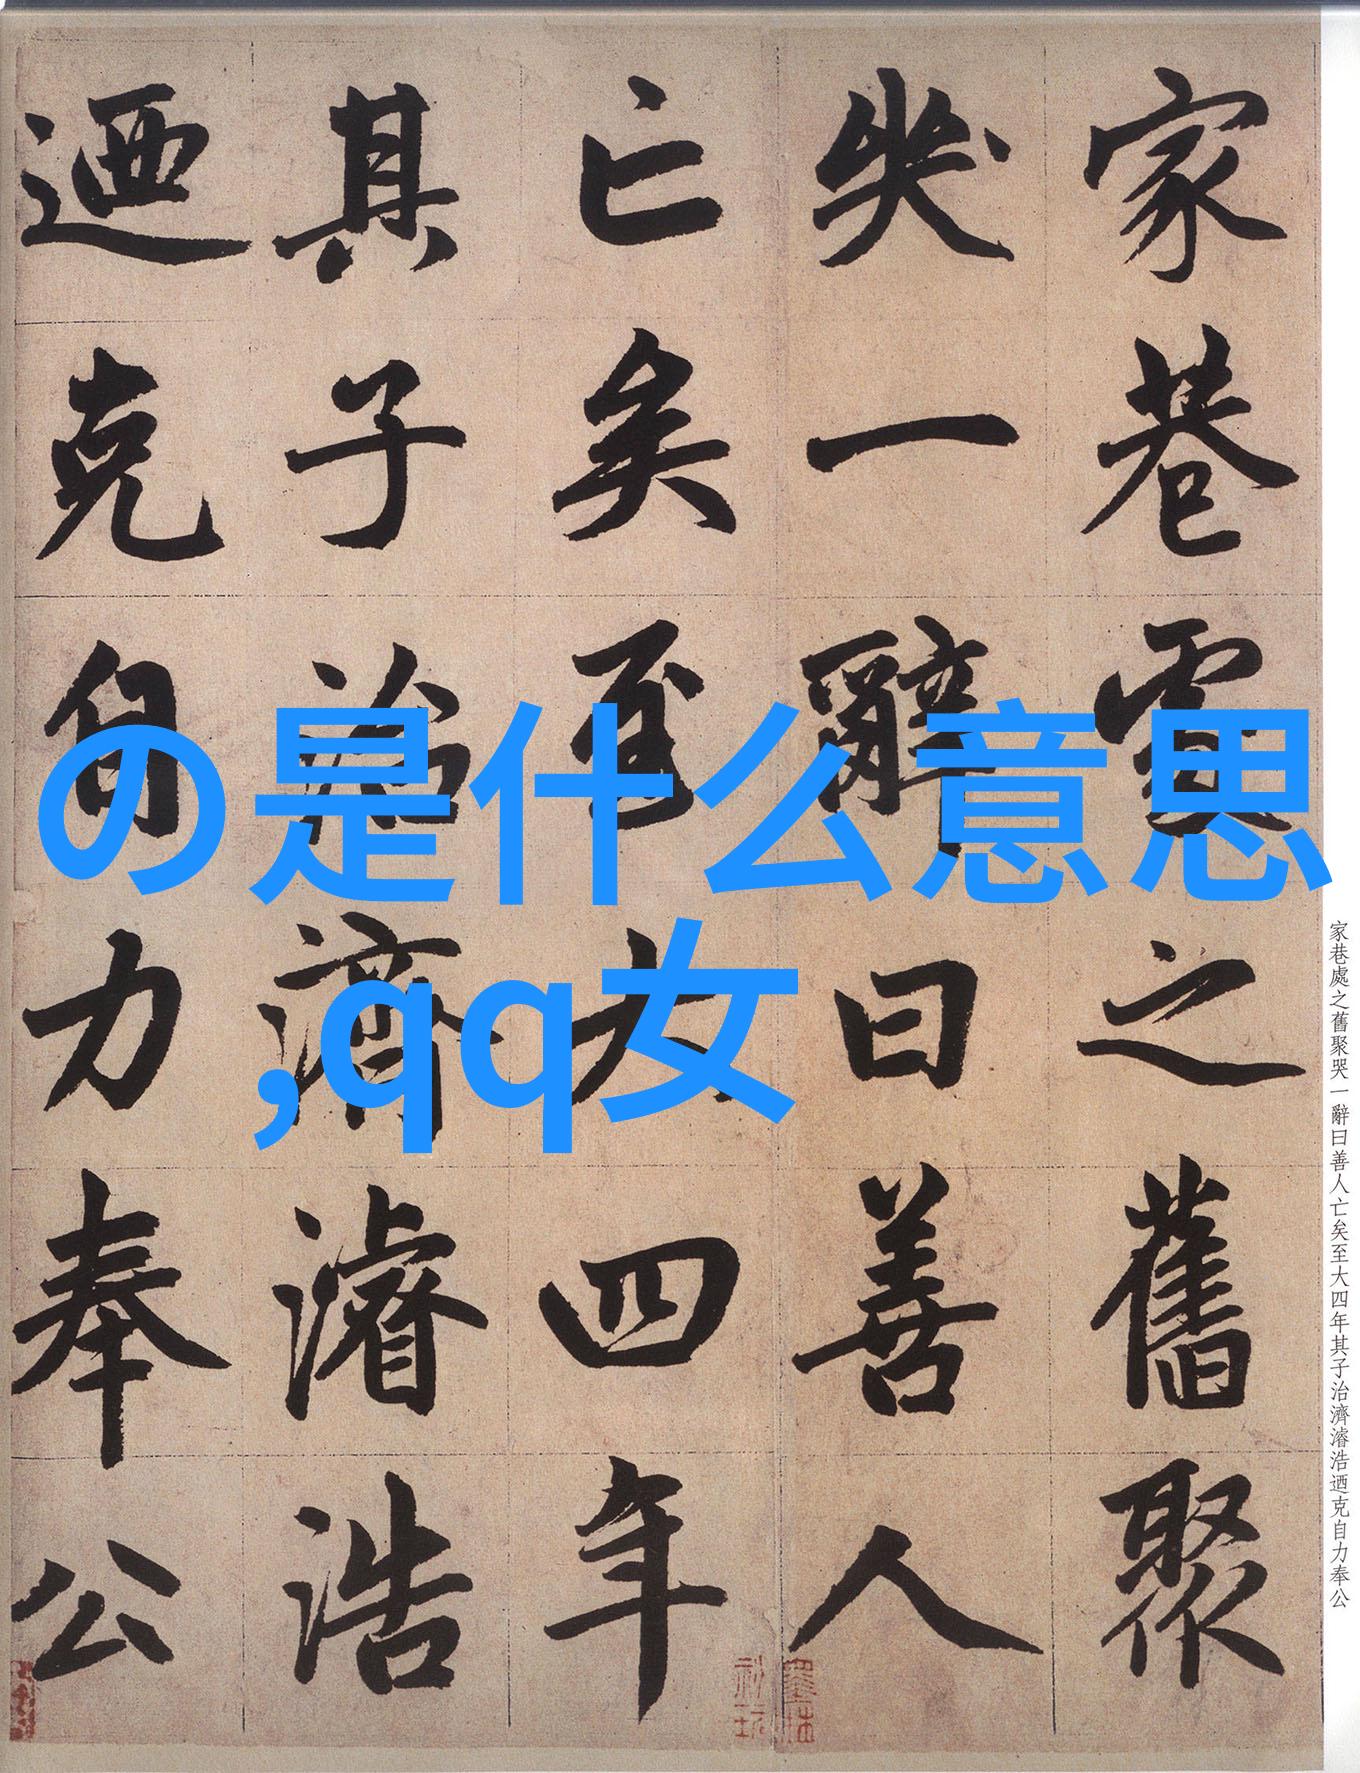 の是什么意思
,qq女
家巷處之舊聚
哭一辭曰善人
亡矣至大四年
其子治濟濬浩
迺克自力奉公
家巷處之舊聚哭一辭曰善人亡矣至大四年其子治濟濬浩迺克自力奉公
墨林
秘玩